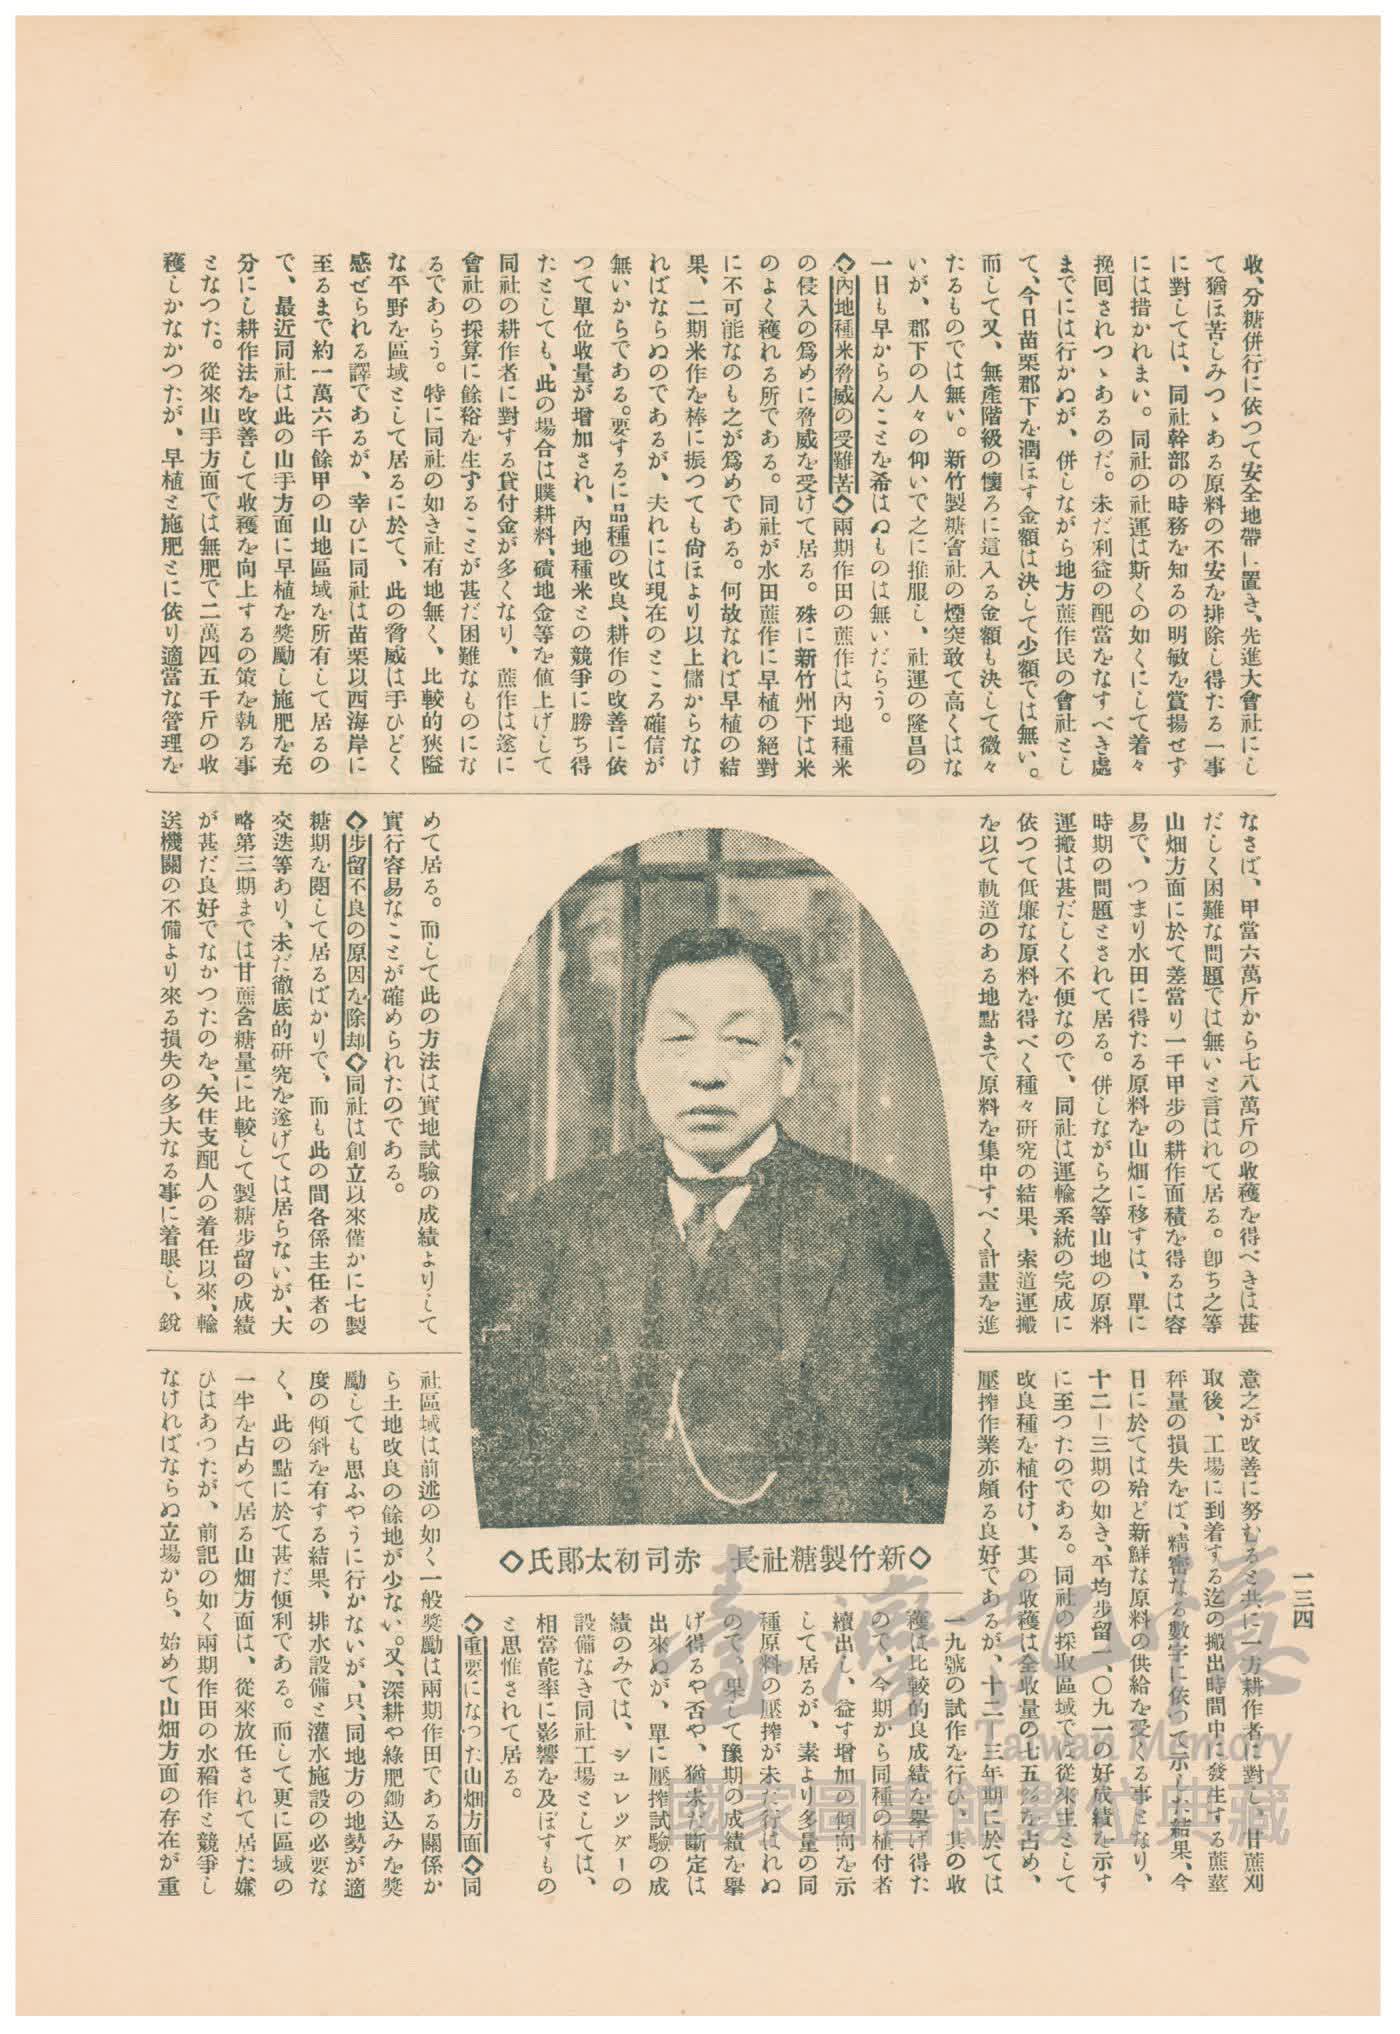 收、分糖併行に依つて安全地帶に置き、先進大會社にし
て猶ほ苦しみつゝある原料の不安を排除し得たる一事
に對しては、同社幹部の時務を知るの明敏を賞揚せず
には措かれまい。同社の社運は斯くの如くにして着々
挽回されつゝあるのだ。未だ利益の配當をなすべき處
までには行かぬが、併しながら地方蔗作民の會社とし
て、今日苗栗郡下を潤ほす金額は決して少額では無い。
而して又、無產階級の懷ろに這入る金額も決して微々
たるものでは無い。新竹製糖會社の煙突敢て高くはな
いが、郡下の人々の仰いで之に推服し、社運の隆昌の
一日も早からんことを希はぬものは無いだらう。
◇內地種米脅威の受難苦◇兩期作田の蔗作は內地種米
の侵入の爲めに脅威を受けて居る。殊に新竹州下は米
のよく穫れる所である。同社が水田蔗作に早植の絕對
に不可能なのも之が爲めである。何故なれば早植の結
果、二期米作を棒に振つても尙ほより以上儲からなけ
ればならぬのであるが、夫れには現在のところ確信が
無いからである。要するに品種の改良、耕作の改善に依
つて單位收量が增加され、內地種米との競爭に勝ち得
たとしても、此の場合は贌耕料、磧地金等を値上げして
同社の耕作者に對する貸付金が多くなり、蔗作は遂に
會社の採算に餘裕を生ずることが甚だ困難なものにな
るであらう。特に同社の如き社有地無く、比較的狹隘
な平野を區域として居るに於て、此の脅威は手ひどく
感ぜられる譯であるが、幸ひに同社は苗栗以西海岸に
至るまで約一萬六千餘甲の山地區域を所有して居るの
で、最近同社は此の山手方面に早植を獎勵し施肥を充
分にし耕作法を改善して收穫を向上するの策を執る事
となつた。從來山手方面では無肥で二萬四五千斤の收
穫しかなかつたが、早植と施肥とに依り適當な管理を
なさば、甲當六萬斤から七八萬斤の收穫を得べきは甚
だしく困難な問題では無いと言はれて居る。卽ち之等
山畑方面に於て差當り一千甲步の耕作面積を得るは容
易で、つまり水田に得たる原料を山畑に移すは、單に
時期の問題とされて居る。併しながら之等山地の原料
運搬は甚だしく不便なので、同社は運輸系統の完成に
依つて低廉な原料を得べく種々硏究の結果、索道運搬
を以て軌道のある地點まで原料を集中すべく計畫を進
めて居る。而して此の方法は實地試驗の成績よりして
實行容易なことが確められたのである。
◇步留不良の原因を除却◇同社は創立以來僅かに七製
糖期を閱して居るばかりで、而も此の間各係主任者の
交迭等あり、未だ徹底的硏究を遂げては居らないが、大
略第三期までは甘蔗含糖量に比較して製糖步留の成績
が甚だ良好でなかつたのを、矢住支配人の着任以來、輸
送機關の不備より來る損失の多大なる事に着眼し、銳
◇新竹製糖社長　赤司初太郞氏◇
一三四
意之が改善に努むると共に一方耕作者に對し、甘蔗刈
取後、工場に到着する迄の搬出時間中に發生する蔗莖
秤量の損失をば、精密なる數字に依つて示した結果、今
日に於ては殆ど新鮮な原料の供給を受くる事となり、
十二―三期の如き、平均步留一、〇九一の好成績を示す
に至つたのである。同社の採取區域では從來主として
改良種を植付け、其の收穫は全收量の七五%を占め、
壓搾作業亦頗る良好であるが、十二―三年期に於ては
一九號の試作を行ひ、其の收
穫は比較的良成績を擧げ得た
ので、今期から同種の植付者
續出し、益す增加の傾向を示
して居るが、素より多量の同
種原料の壓搾が未だ行はれぬ
ので、果して豫期の成績を擧
げ得るや否や、猶未だ斷定は
出來ぬが、單に壓搾試驗の成
績のみでは、シユレツダーの
設備なき同社工場としては、
相當能率に影響を及ぼすもの
と思惟されて居る。
◇重要になつた山畑方面◇同
社區域は前述の如く一般獎勵は兩期作田である關係か
ら土地改良の餘地が少ない。又、深耕や綠肥鋤込みを獎
勵しても思ふやうに行かないが、只、同地方の地勢が適
度の傾斜を有する結果、排水設備と灌水施設の必要な
く、此の點に於て甚だ便利である。而して更に區域の
一半を占めて居る山畑方面は、從來放任されて居た嫌
ひはあつたが、前記の如く兩期作田の水稻作と競爭し
なければならぬ立場から、始めて山畑方面の存在が重
臺灣記憶
Taiwan Memory
國家圖書館數位典藏